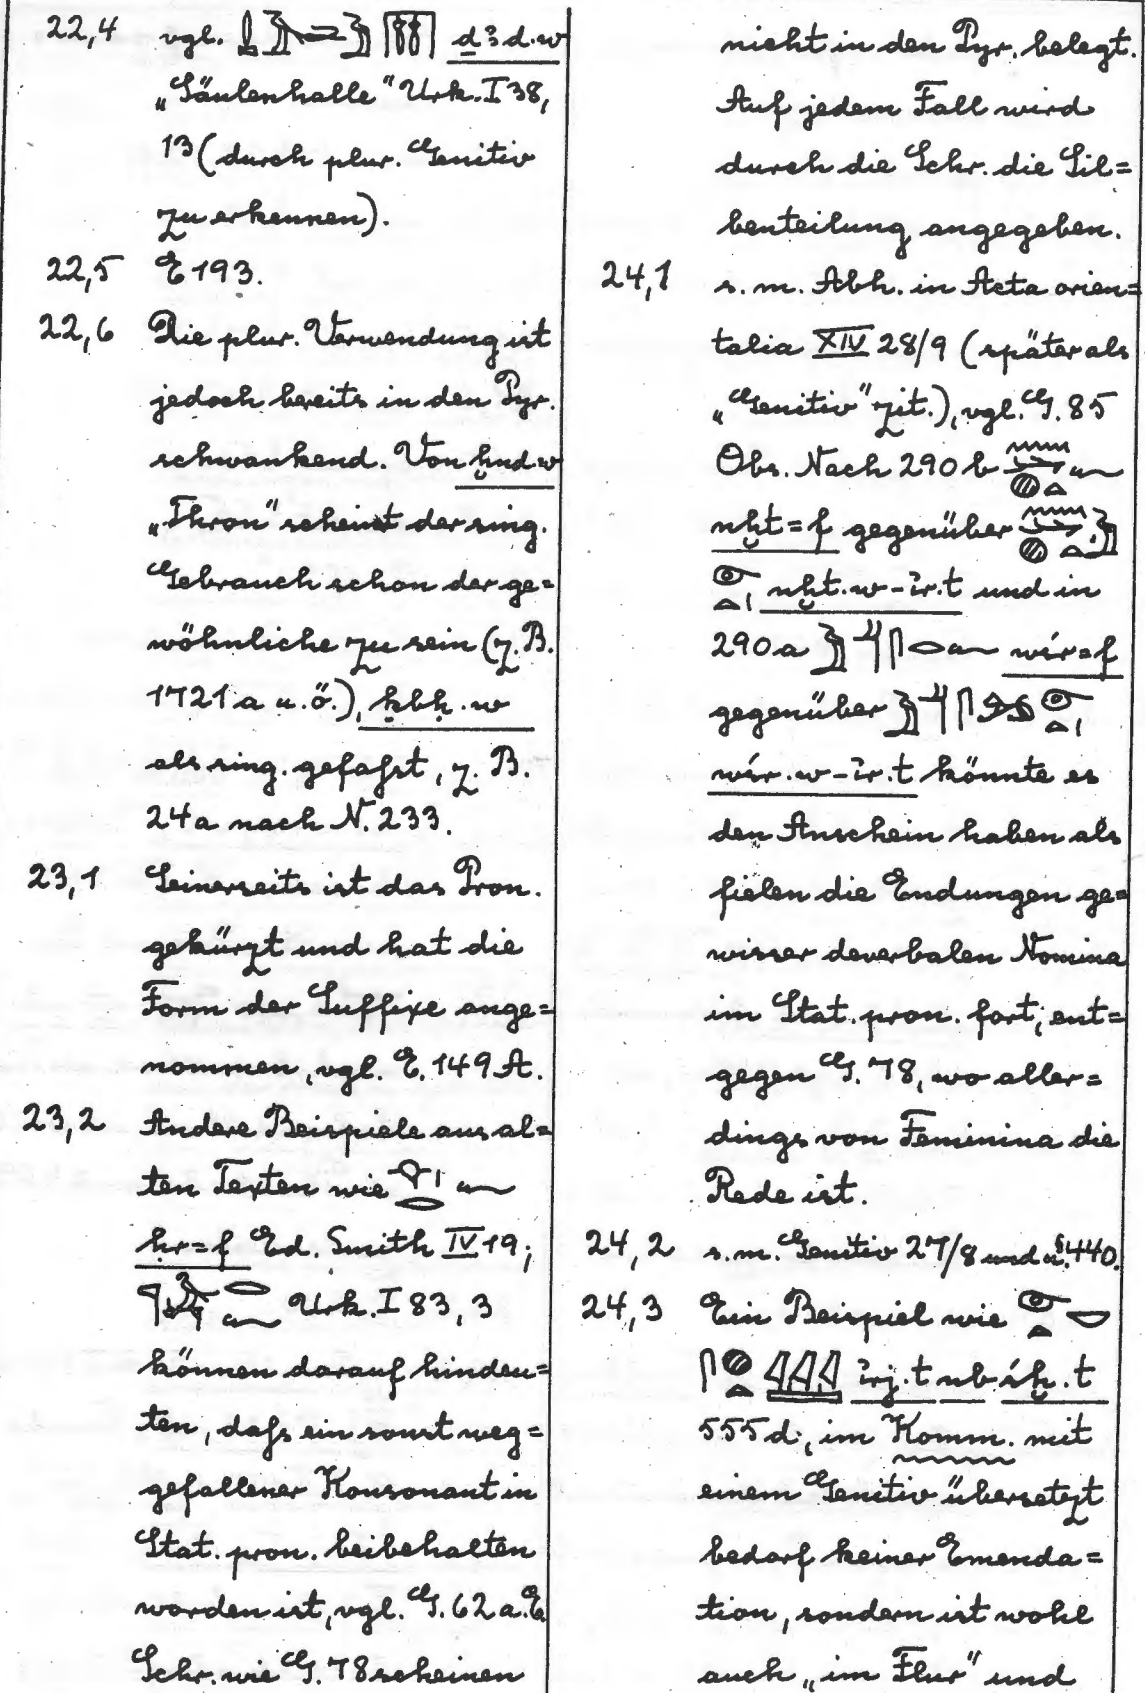 22,4 vgl. ḏꜣd.w
„Säulenhalle" Urk. I 38,
13 (durch plur. Genitiv
zu erkennen).
22,5 E 193.
22,6 Die plur. Verwendung ist
jedoch bereits in den Pyr.
schwankend. Von ḫnd.w
„Thron" scheint der sing.
Gebrauch schon der ge=
wöhnliche zu sein (z. B.
1721 a u. ö.), ḳbḥ.w
als sing. gefaßt, z. B.
24a nach N. 233.
23,1 Seinerseits ist das Pron.
gekürzt und hat die
Form der Suffixe ange=
nommen, vgl. E. 149 A.
23,2 Andere Beispiele aus al=
ten Texten wie
ḥr=f Ed. Smith IV 19;
Urk. I 83, 3
können darauf hindeu=
ten, daß ein sonst weg=
gefallener Konsonant in
Stat. pron. beibehalten
worden ist, vgl. G. 62 a. E.
Schr. wie G. 78 scheinen
nicht in den Pyr. belegt.
Auf jedem Fall wird
durch die Schr. die Sil=
benteilung angegeben.
24,1 s. m. Abh. in Acta orien=
talia XIV 28/9 (später als
„Genitiv" zit.), vgl. G. 85
Obs. Nach 290 b
nḫt=f gegenüber
nḫt.w-ir.t und in
290 a wśr=f
gegenüber
wśr.w-ir.t könnte es
den Anschein haben als
fielen die Endungen ge=
wisser deverbalen Nomina
im Stat. pron. fort, ent=
gegen G. 78, wo aller=
dings von Feminina die
Rede ist.
24,2 s. m. Genitiv 27/8 und u. § 440.
24,3 Ein Beispiel wie
irj.t nb śḫ.t
555 d, im Komm. mit
einem Genitiv übersetzt
bedarf keiner Emenda=
tion, sondern ist wohl
auch „im Flur" und